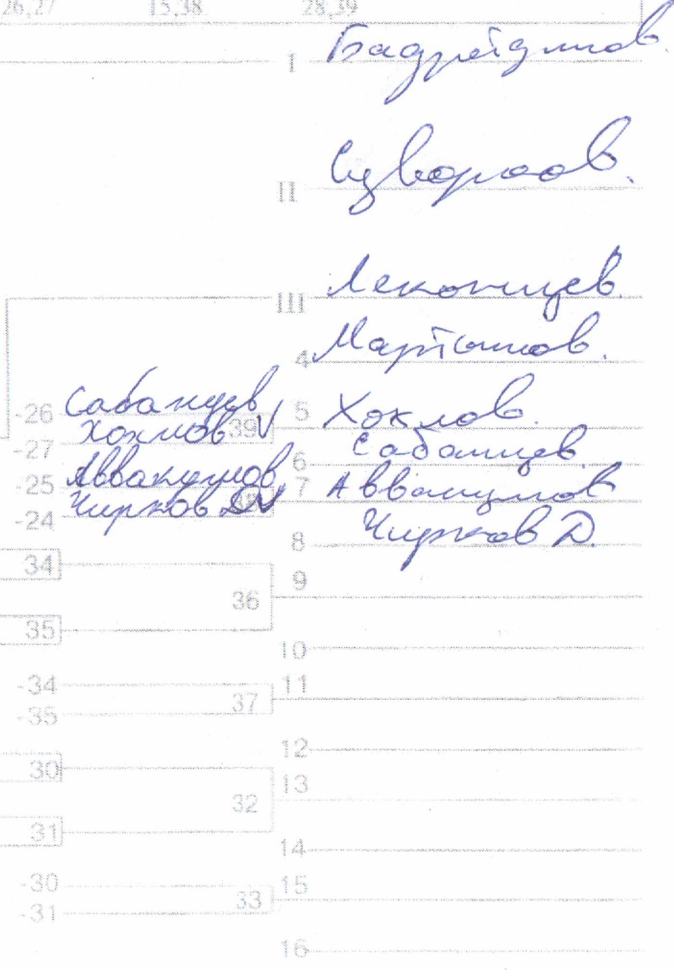 26,27 15,38 28,39
I Бадретдинов.
II Суворов.
III Лекомцев.
4 Мартынов.
-26 Сабанцев 5 Хохлов.
-27 Хохлов 39 V 6 Сабанцев.
-25 Аввакумов 7 Аввакумов
-24 Чирков D V 8 Чирков D.
34 9
36
35 10
-34 11
37
-35 12
30 13
32
31 14
-30 15
33
-31 16